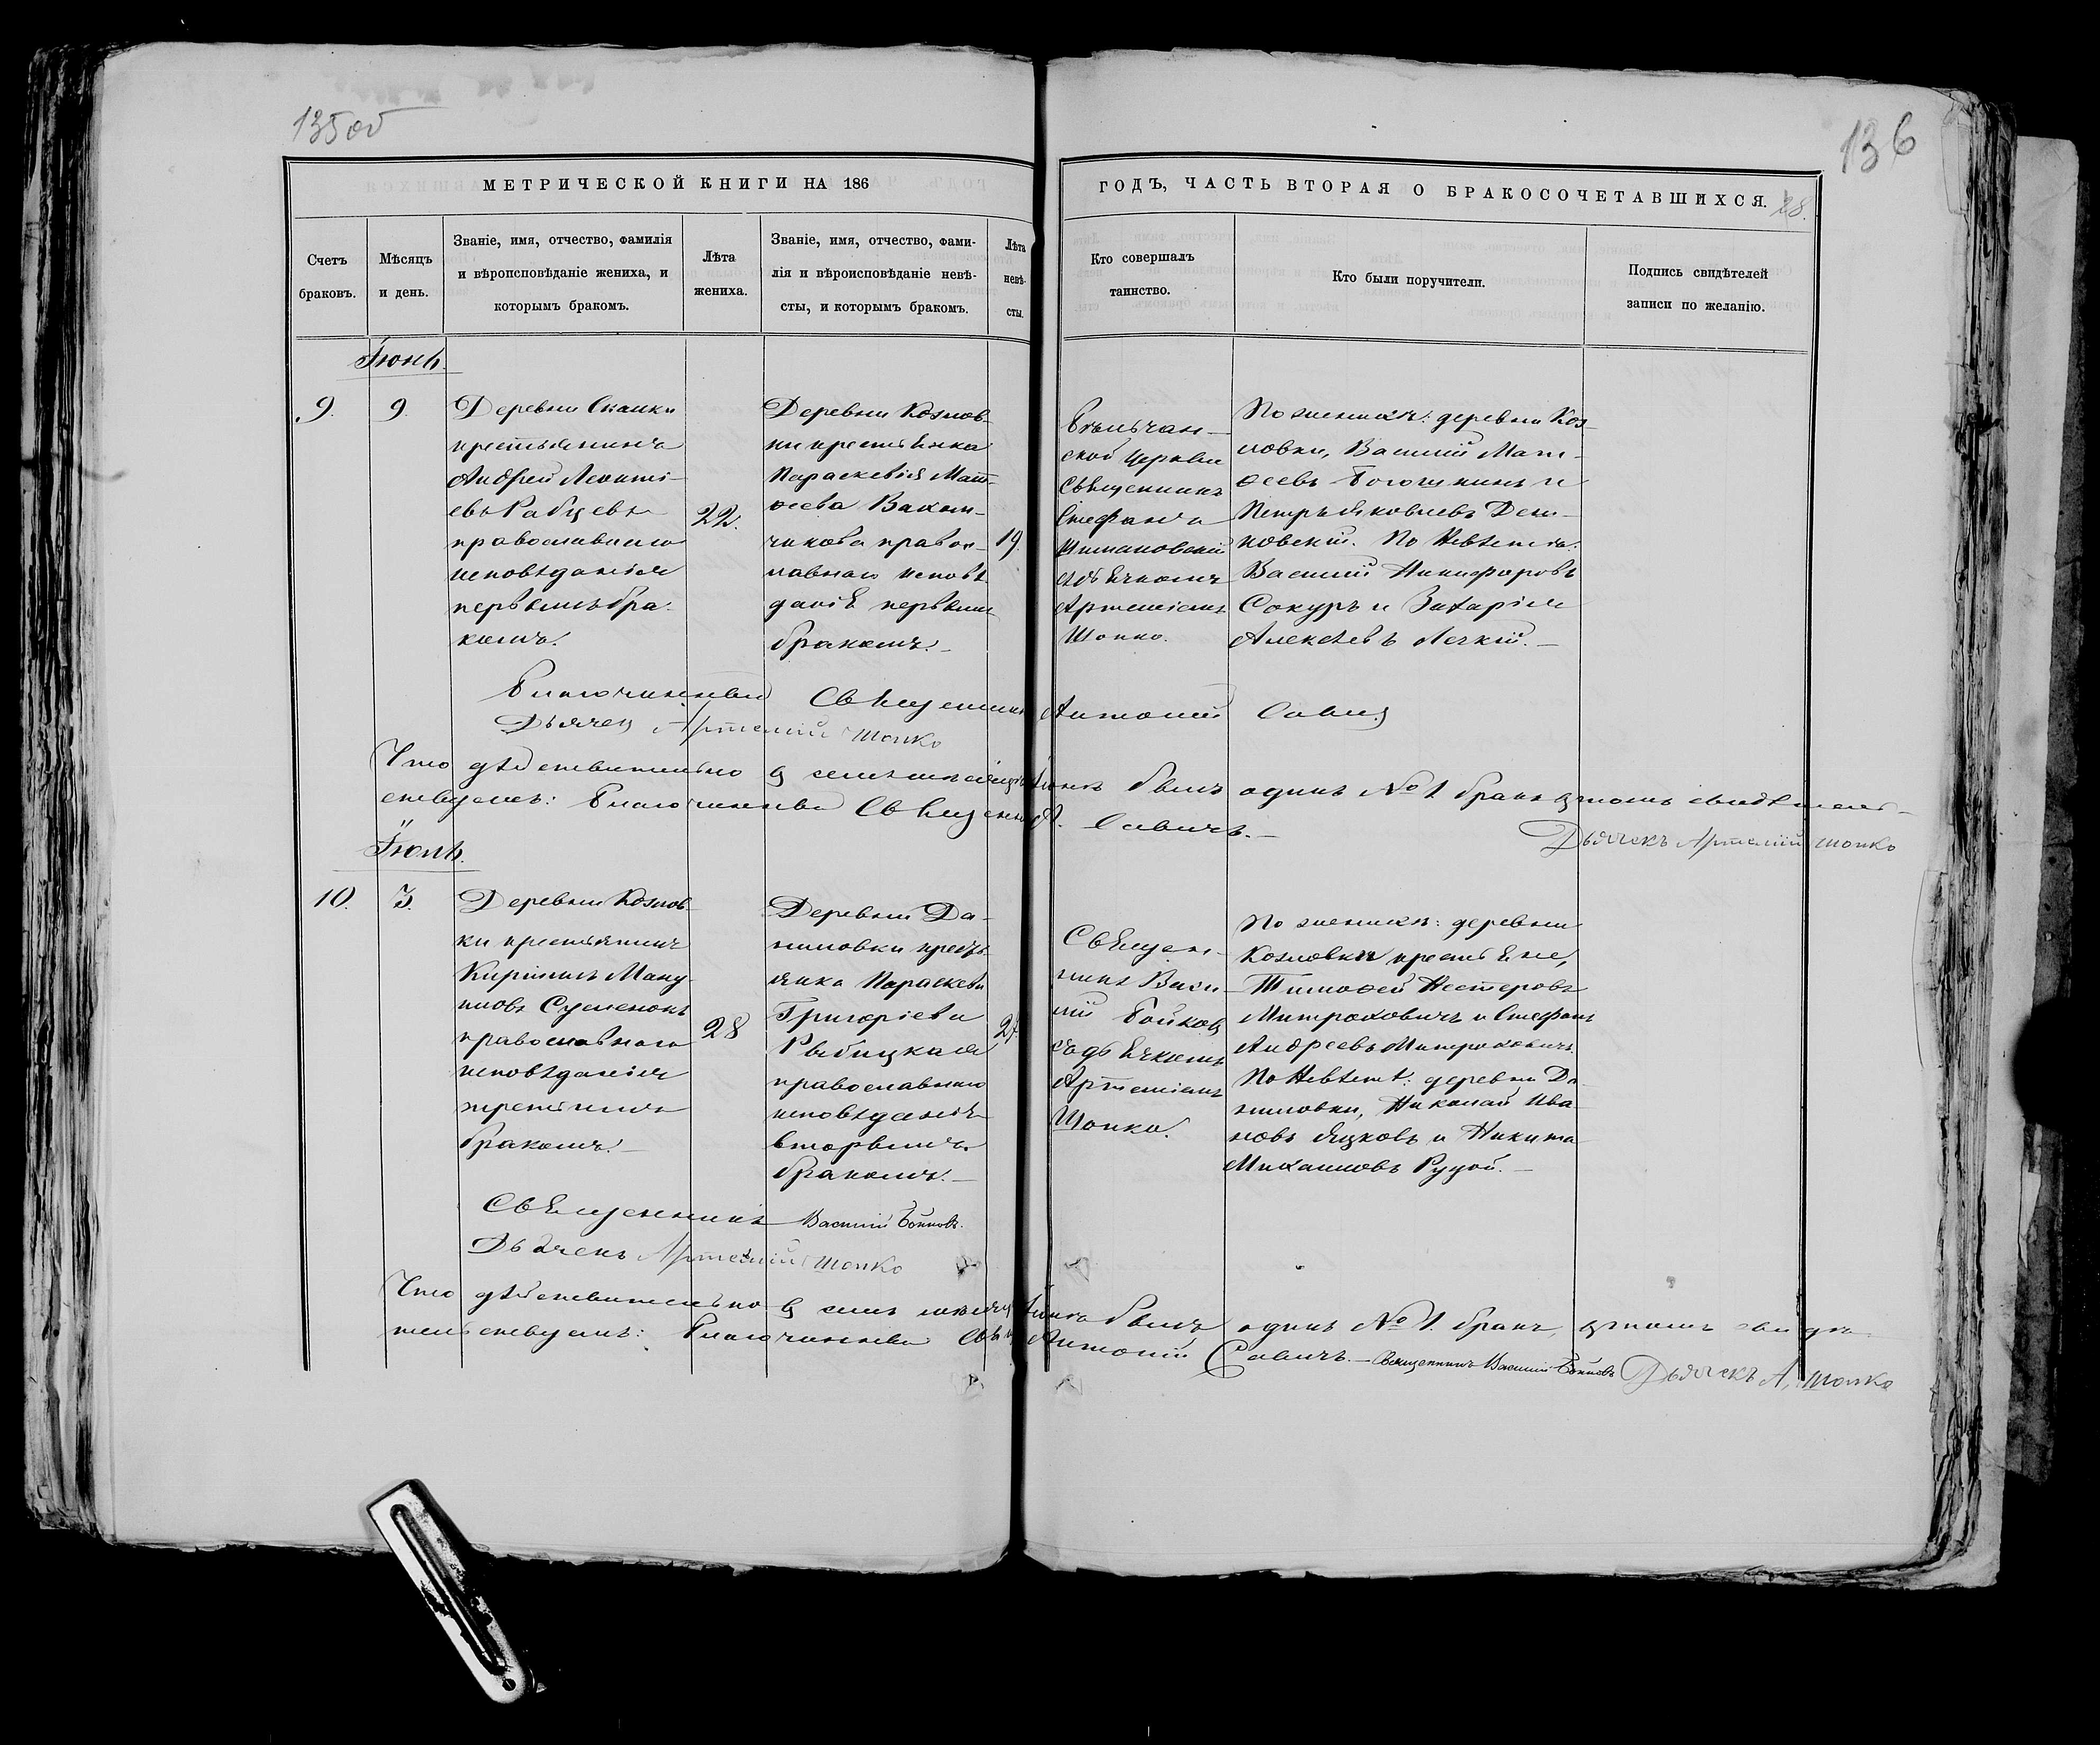 135 об
136
МЕТРИЧЕСКОЙ КНИГИ НА 186
ГОДЪ, ЧАСТЬ ВТОРАЯ О БРАКОСОЧЕТАВШИХСЯ.
28.
Счетъ
браковъ.
Мѣсяцъ
и день.
Званіе, имя, отчество, фамилія
и вѣроисповѣданіе жениха, и
которымъ бракомъ.
Лѣта
жениха.
Званіе, имя, отчество, фами-
лія и вѣроисповѣданіе невѣ-
сты, и которымъ бракомъ.
Лѣта
невѣ-
сты.
Кто совершалъ
таинство.
Кто были поручители.
Подпись свидѣтелей
записи по желанію.
Іюнь.
9.
9.
Деревни Скакки
крестьянинъ
Андрей Леонті-
евъ Рабцевъ
православнаго
исповѣданія
первымъ бра-
комъ.
22.
Деревни Козлов-
ки крестьянка
Параскевія Мат-
ѳеева
правос-
лавнаго исповѣ-
данія первымъ
бракомъ.
19.
ской Церкви
Священникъ
Стефанъ
съ дьячкомъ
Артеміемъ
Шопко.
По женихѣ: деревни Коз-
ловки, Василій Мат-
ѳеевъ и
Петръ Яковлевъ Дем-
ковскій. По невѣстѣ:
Василій Никифоровъ
Сокуръ и Захарій
Алексѣевъ Легкій.
Благочинный Священникъ Антоній Савич
Дьячек Артемій Шопко
Что дѣйствительно в семъ мѣсяцѣ Іюнѣ былъ одинъ №1 бракъ в томъ свидѣтель-
ствуемъ: Благочинный Священникъ А. Савичъ.
Дьячекъ Артемій Шопко
Іюль.
10.
3.
Деревни Козлов-
ки крестьянинъ
Кириллъ Ману
иловъ Суменокъ
православнаго
исповѣданія
третьимъ
бракомъ.
28
Деревни Да-
ниловки кресть-
янка Параскева
Григоріева
Рыбицкая
православнаго
исповѣданія
вторымъ
бракомъ.
27.
Священ-
никъ Васи-
лій Бойков
съ дьячкомъ
Артеміемъ
Шопко.
По женихѣ: деревни
Козловки крестьяне,
Тимоѳей Нестеровъ
Митроховичъ и Стефанъ
Андреевъ Митроховичъ.
По невѣстѣ: деревни Да-
ниловки, Николай Ива-
новъ Яцковъ и Никита
Михаиловъ Руцой.
Священникъ Василій Бойковъ.
Дьячекъ Артемій Шопко
Что дѣйствительно в семъ мѣсяцѣ былъ одинъ №1. бракъ, в томъ свидѣ-
тельствуемъ: Благочинный Антоній Савичъ. Священникъ Василій Бойковъ Дьячекъ А. Шопко